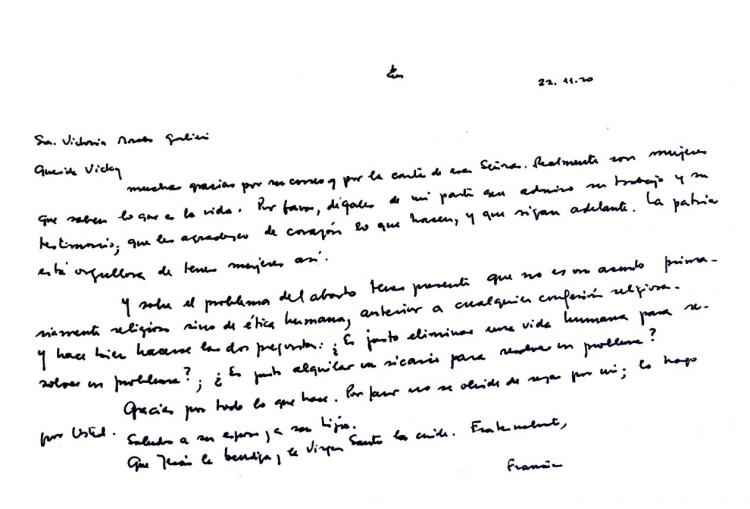 22.11.20
Sra. Victoria Morales Gorleri
Querida Vicky
muchas gracias por su correo y por la carta de esas Señoras. Realmente son mujeres
que saben lo que es la vida. Por favor, dígales de mi parte que admiro su trabajo y su
testimonio; que les agradezco de corazón lo que hacen, y que sigan adelante. La patria
está orgullosa de tener mujeres así.
Y sobre el problema del aborto tener presente que no es un asunto prima-
riamente religioso sino de ética humana, anterior a cualquier confesión religiosa.
Y hace bien hacerse las dos preguntas: ¿Es justo eliminar una vida humana para re-
solver un problema?; ¿Es justo alquilar un sicario para resolver un problema?
Gracias por todo lo que hace. Por favor no se olvide de rezar por mí; lo hago
por Usted. Saludos a su esposo y a sus hijos.
Que Jesús la bendiga y la Virgen Santa la cuide. Fraternalmente,
Francisco